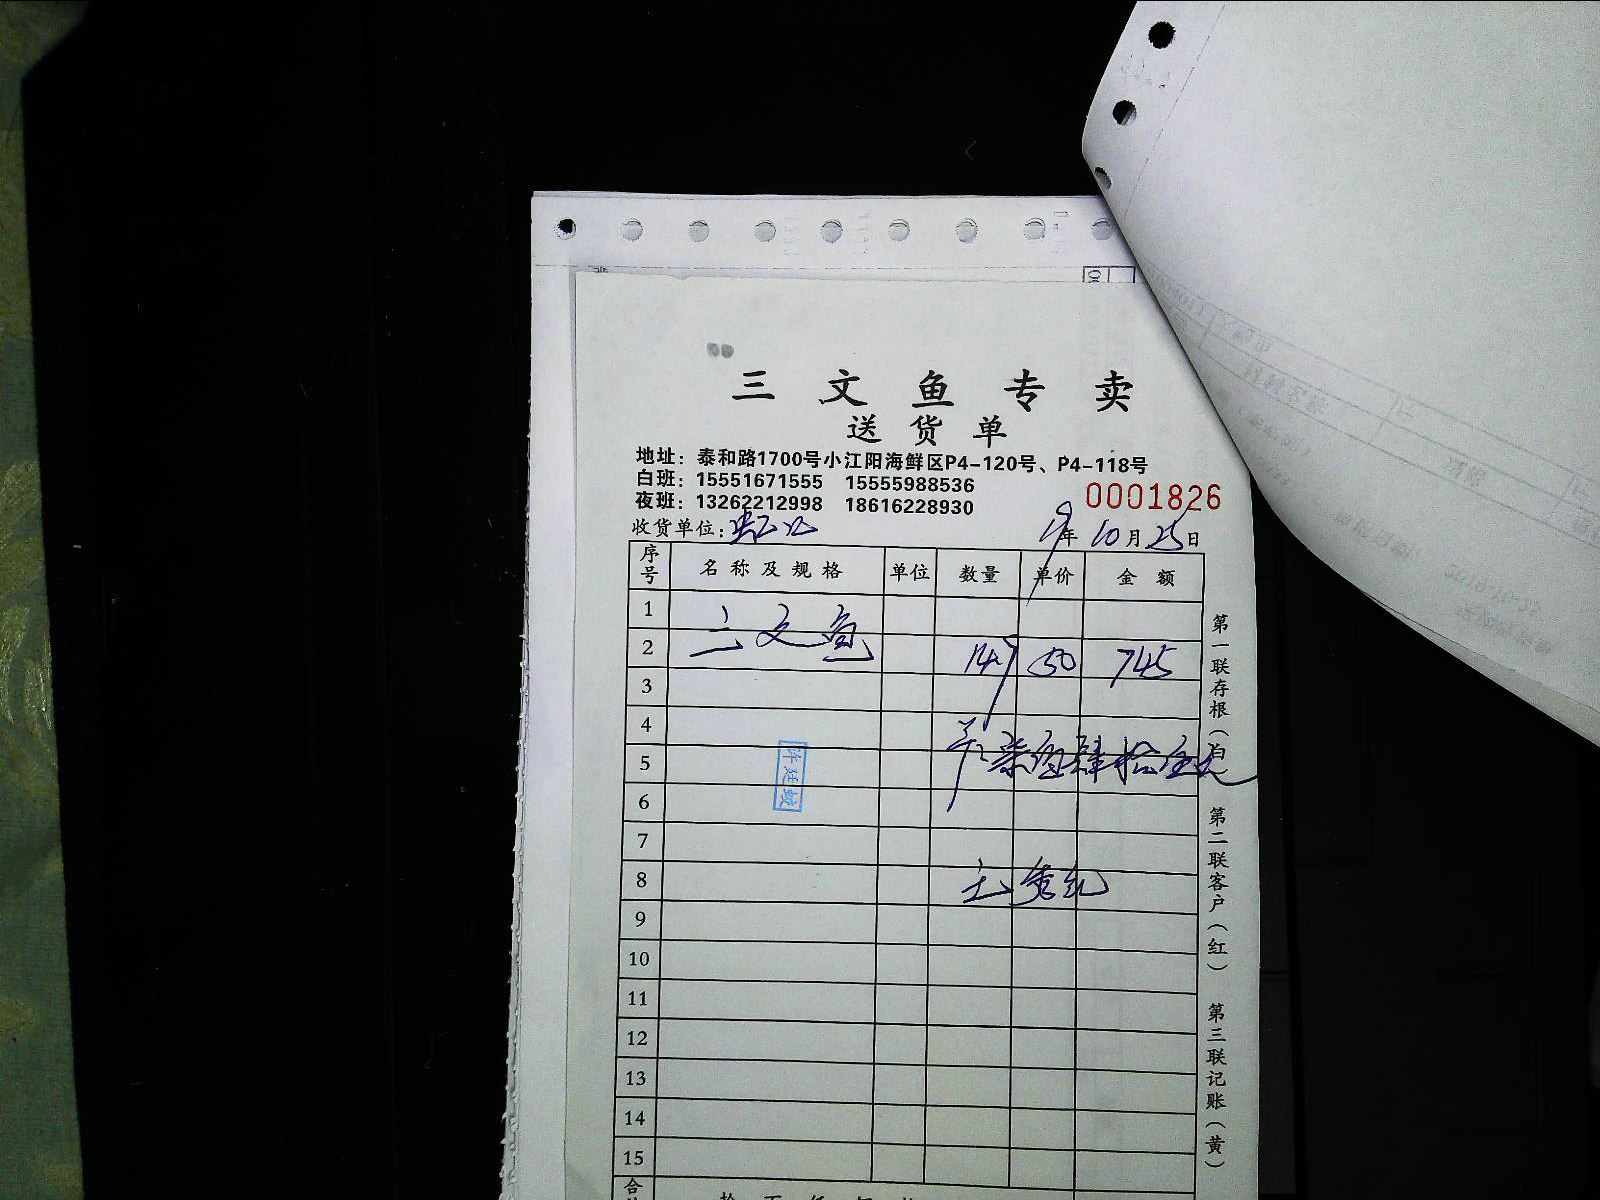 三文鱼专卖
送货单
地址：泰和路1700号小江阳海鲜区P4-120号、P4-118号
白班：15551671555 15555988536
夜班：13262212998 18616228930
0001826
收货单位：
19年10月25日
序号 名称及规格 单位 数量 单价 金额
1
2 三文鱼 14.9 50 745
3
4
5 柒佰肆拾伍元
6
7
8
9
10
11
12
13
14
15
合
第一联存根（白）
第二联客户（红）
第三联记账（黄）